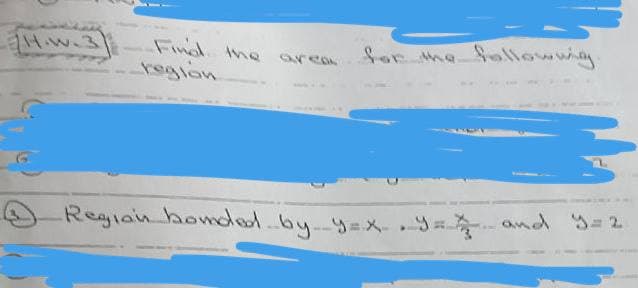 H.W.3 Find the area for the following
region
2
③ Region bonded by y=x , y=x/3 and y=2